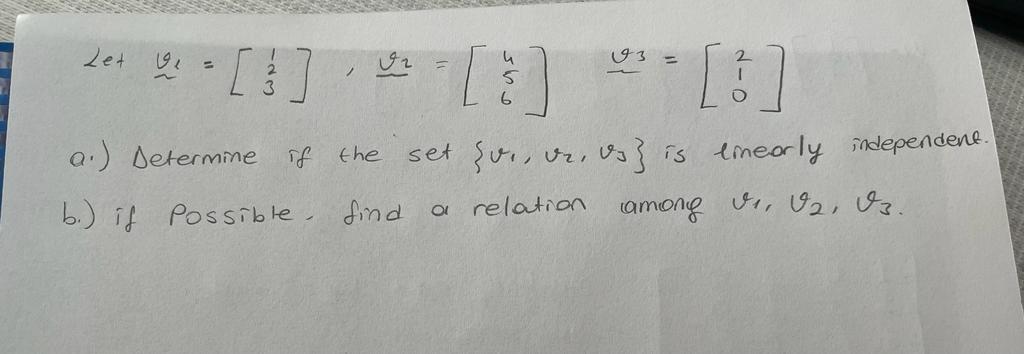 Let v1 = [1 2 3], v2 = [4 5 6] v3 = [2 1 0]
a.) Determine if the set {v1, v2, v3} is linearly independent.
b.) if possible, find a relation among v1, v2, v3.